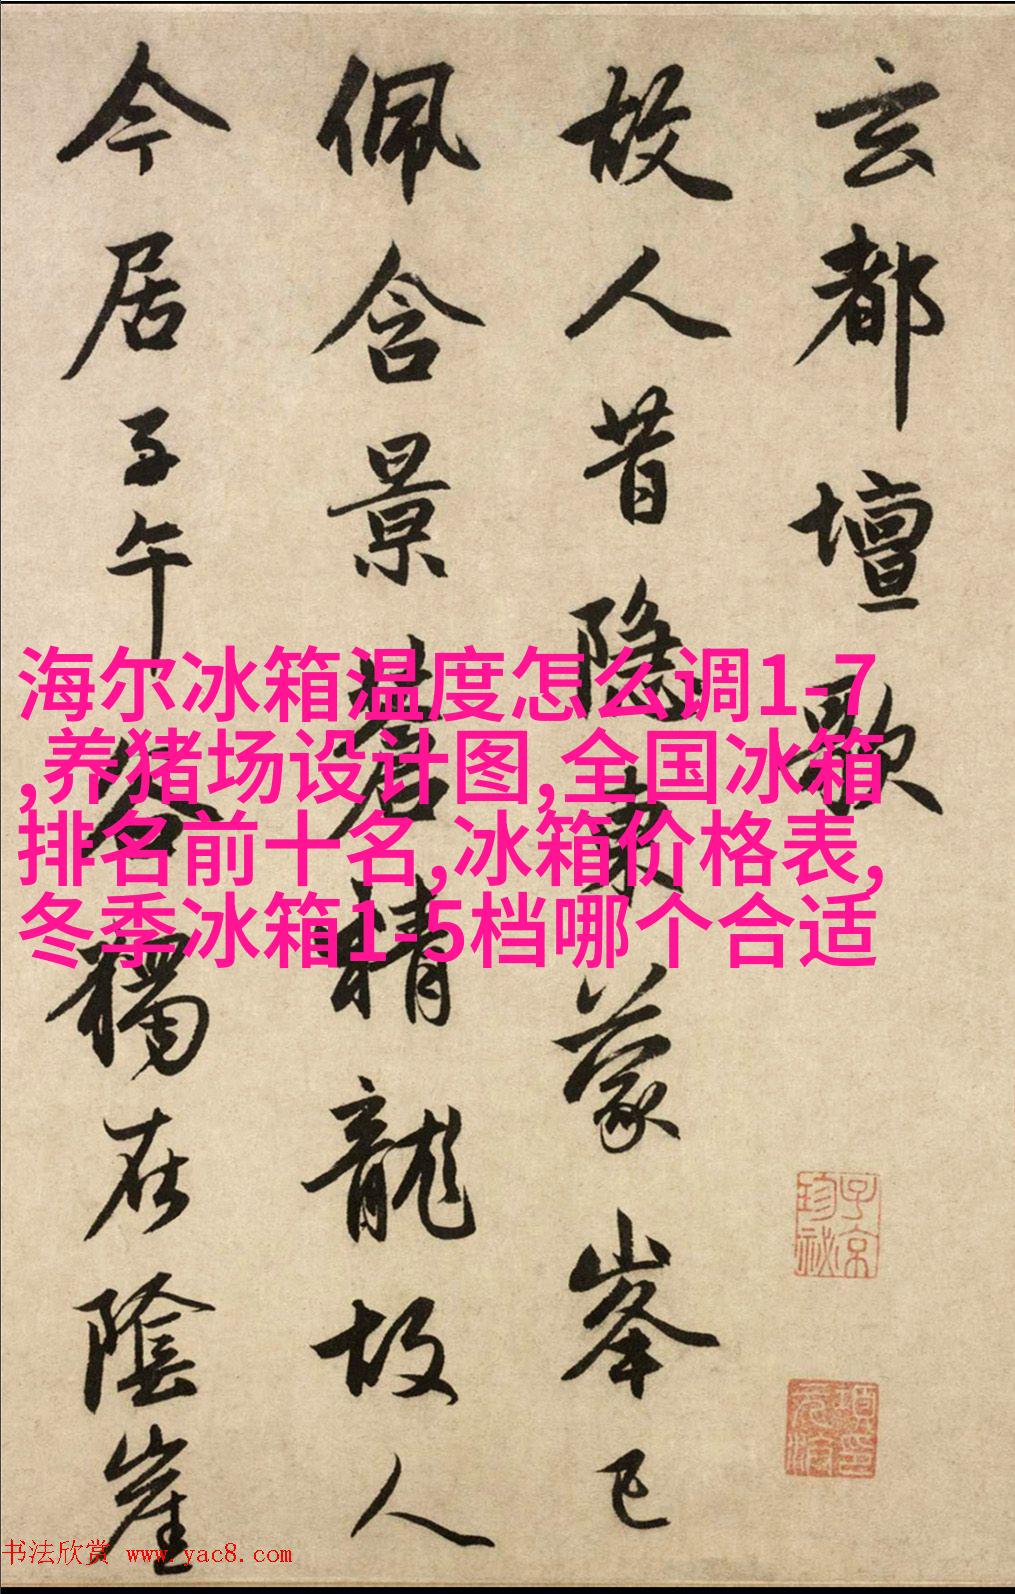 玄都壇歌
故人昔隱東蒙峯已
佩含景蒼精龍故人
今居子午谷獨在陰崖
海尔冰箱温度怎么调1-7
,养猪场设计图,全国冰箱
排名前十名,冰箱价格表,
冬季冰箱1-5档哪个合适
子京
珍祕
书法欣赏 www.yac8.com